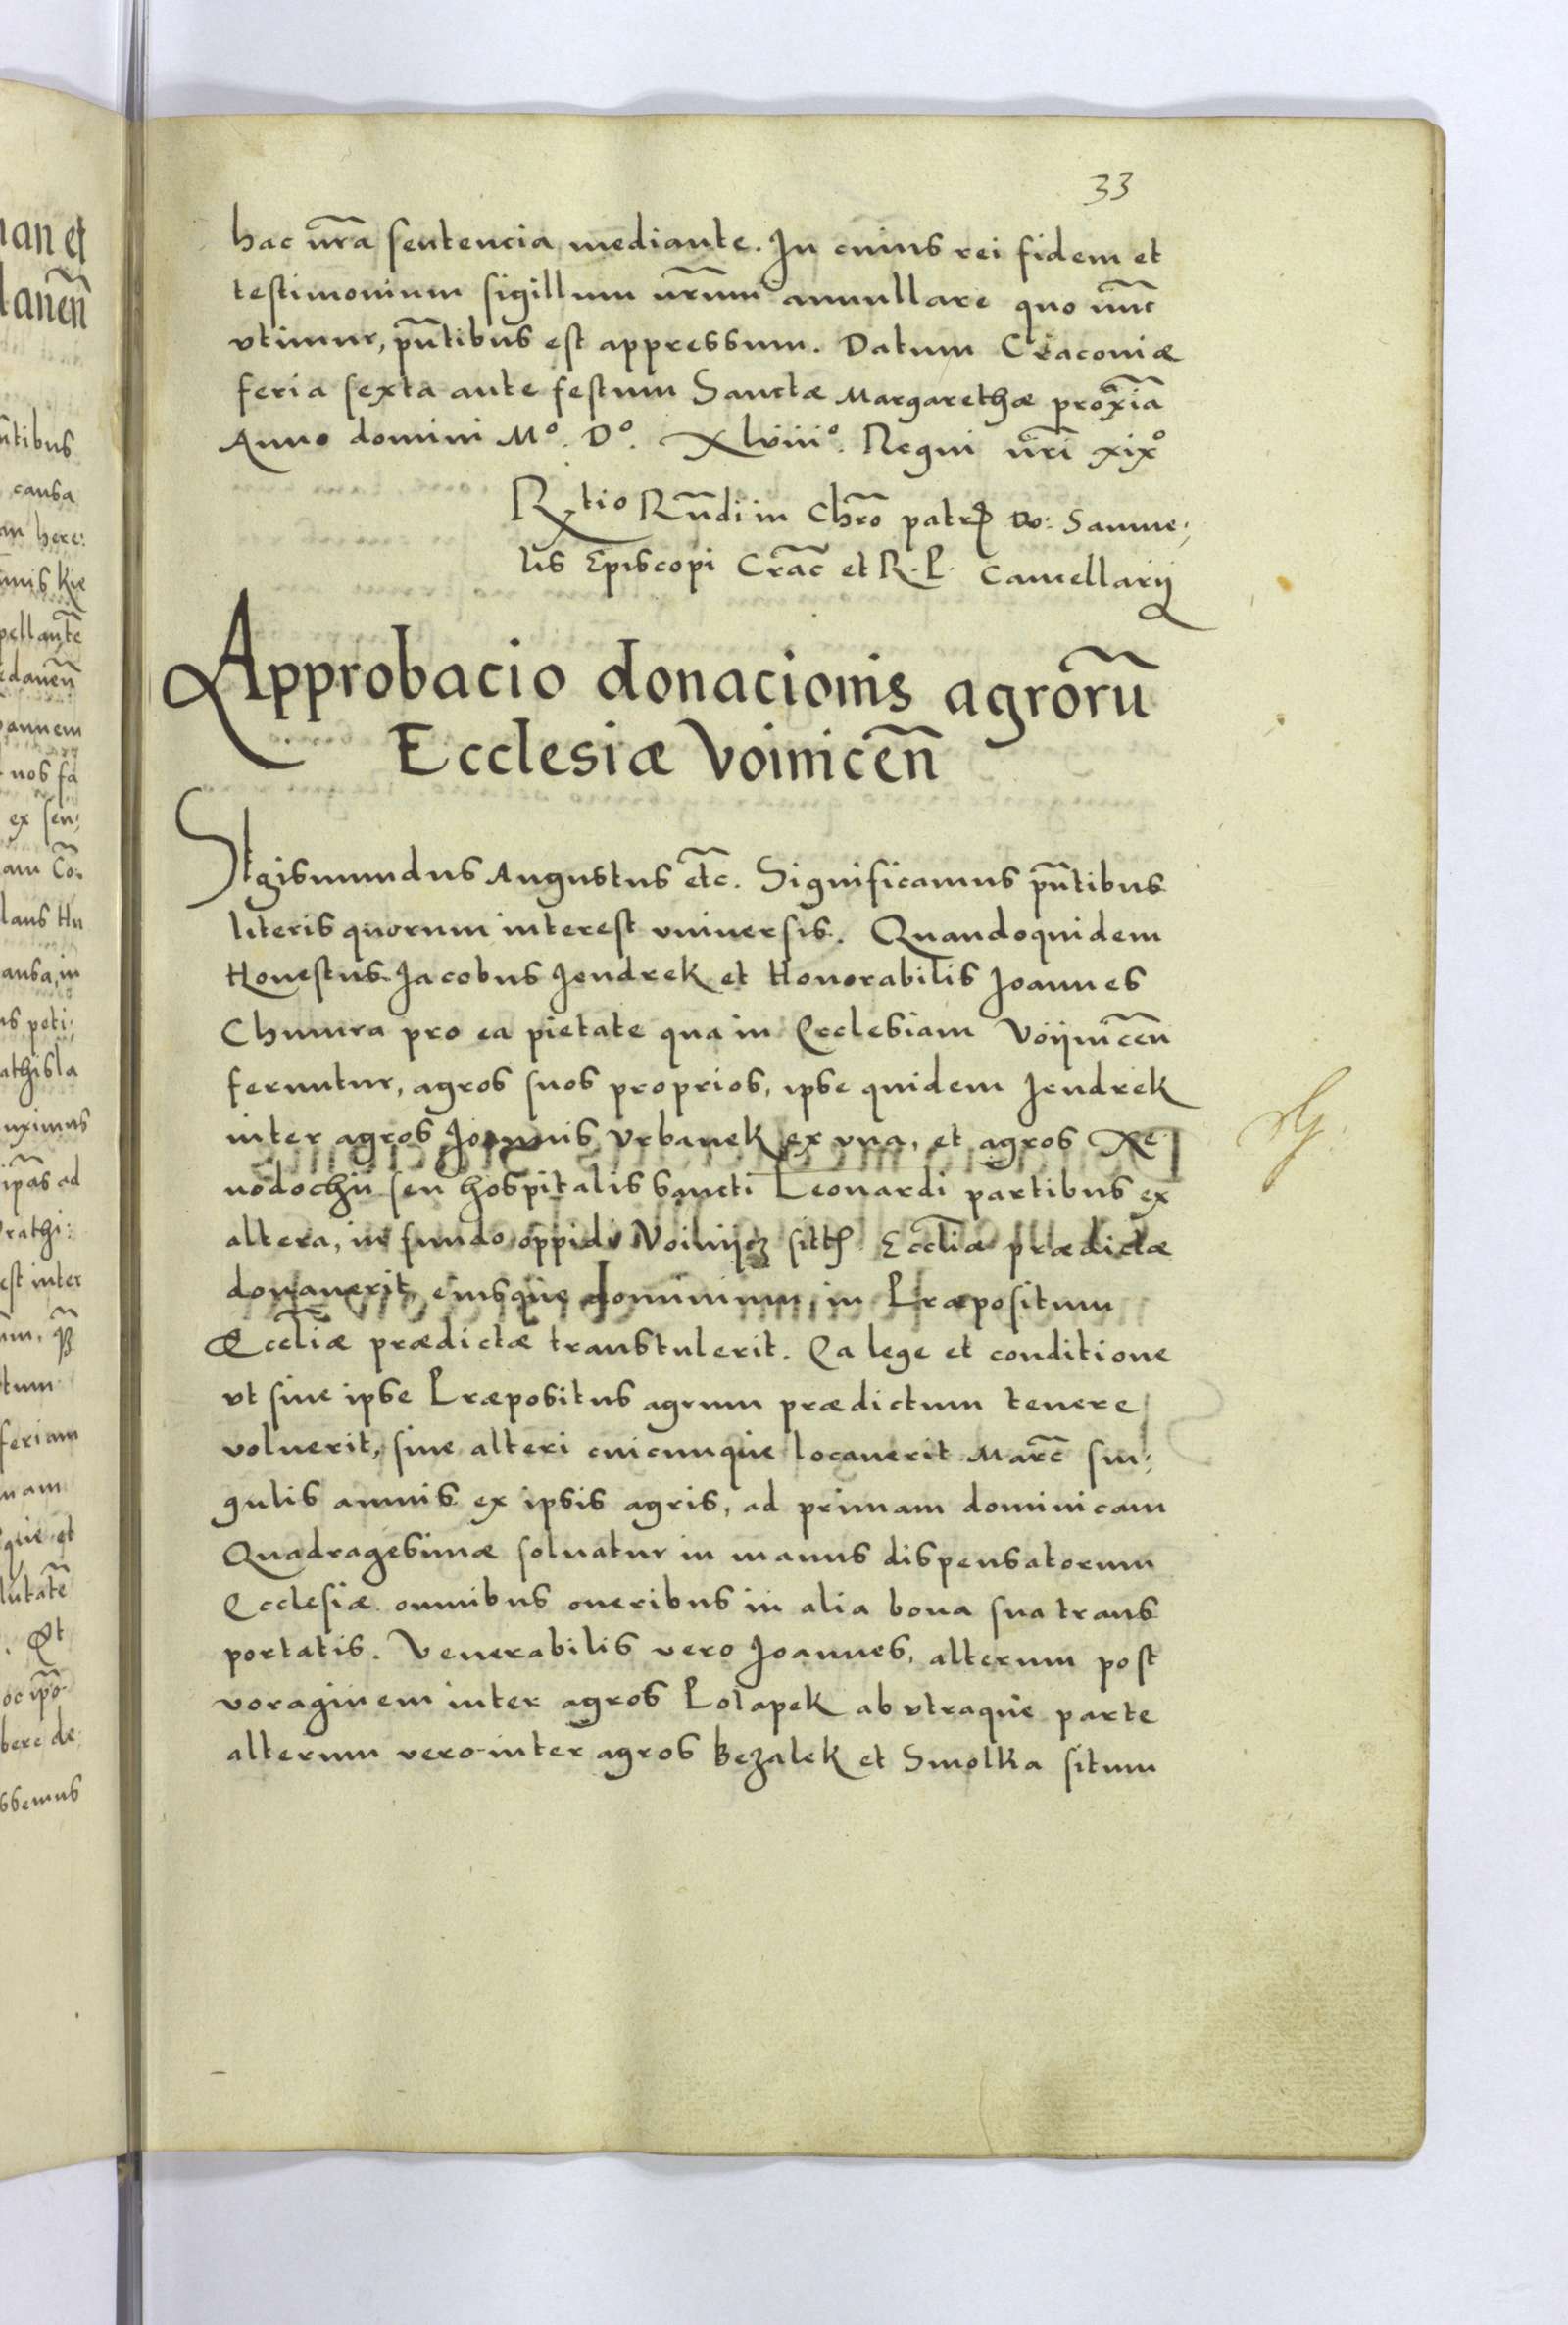 33
hac nr̃a sentencia mediante. In cuius rei fidem et
testimonium sigillum nr̃um annullare quo nũc
vtimur, pñtibus est appressum. Datum Cracouiæ
feria sexta ante festum Sanctæ Margarethæ proxĩa
Anno domini Mº. Dº. Xlviiiº. Regni nr̃i xixº
Rtio Rñdi in Chrõ patris do: Samue,
lis Episcopi Crac̃ et R. P. Cancellarij
Approbacio donacionis agrorũ
Ecclesiæ Voinicen̄
Sigismundus Augustus etc̃. Significamus pñtibus
literis quorum interest vniuersis. Quandoquidem
Honestus Jacobus Jendrek et Honorabilis Joannes
Chmura pro ea pietate qua in Ecclesiam Voijnicen̄
feruntur, agros suos proprios, ipse quidem Jendrek
inter agros Joannis Vrbanek ex vna, et agros Xe
nodochii seu hospitalis Sancti Leonardi partibus ex
altera, in fundo oppidi Voinijcz sitos Eccl̃iæ prædictæ
donauerit, eiusque dominium, in Præpositum
Eccl̃iæ prædictæ transtulerit. Ea lege et conditione
vt siue ipse Præpositus agrum prædictum tenere
voluerit, siue alteri cuicunque locauerit Marc̃ sin,
gulis annis ex ipsis agris, ad primam dominicam
Quadragesimæ soluatur in manus dispensatorum
Ecclesiæ omnibus oneribus in alia bona sua trans
portatis. Venerabilis vero Joannes, alterum post
voraginem inter agros Potapek ab vtraque parte
alterum vero inter agros Bezalek et Smolka situm